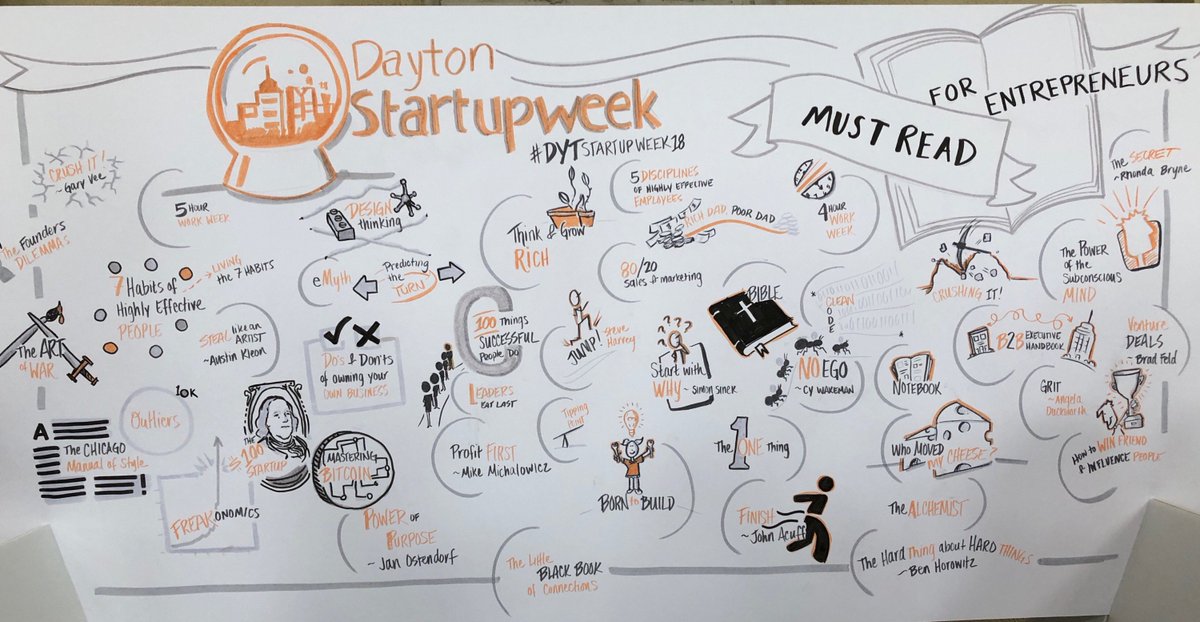 Dayton
Startupweek
#DYTSTARTUPWEEK18
MUST READ
FOR ENTREPRENEURS
CRUSH IT!
~ Gary Vee
5 HOUR
WORK WEEK
DESIGN
thinking
Think & Grow
RICH
5 DISCIPLINES
OF HIGHLY EFFECTIVE
EMPLOYEES
RICH DAD, POOR DAD
4 HOUR
WORK
WEEK
The SECRET
~ Rhonda Bryne
The Founders
DILEMMAS
7 Habits of
Highly Effective
PEOPLE
LIVING
THE 7 HABITS
eMyth
Predicting
the TURN
80/20
Sales & marketing
BIBLE
CLEAN
CODE
CRUSHING IT!
The POWER
OF the
SUBCONSCIOUS
MIND
The ART
OF WAR
STEAL like an
ARTIST
~ Austin Kleon
Do's & Don'ts
of owning your
OWN BUSINESS
100 Things
SUCCESSFUL
People Do
JUMP!
~ Steve
Harvey
Start with
WHY ~ SIMON SINEK
NO EGO
~ CY WAKEMAN
NOTEBOOK
B2B EXECUTIVE
HANDBOOK
Venture
DEALS
~ Brad Feld
10K
Outliers
THE
$100
STARTUP
LEADERS
EAT LAST
Tipping
Point
GRIT
~ Angela
Duckworth
A
The CHICAGO
Manual of Style
!
MASTERING
BITCOIN
Profit FIRST
~ Mike Michalowicz
BORN to BUILD
The 1 ONE Thing
Who MOVED
MY CHEESE?
How to WIN FRIEND
& INFLUENCE PEOPLE
FREAKONOMICS
POWER OF
PURPOSE
~ Jan Ostendorf
FINISH
~ John Acuff
The ALCHEMIST
The Little
BLACK BOOK
of Connections
The Hard Thing about HARD THINGS
~ Ben Horowitz